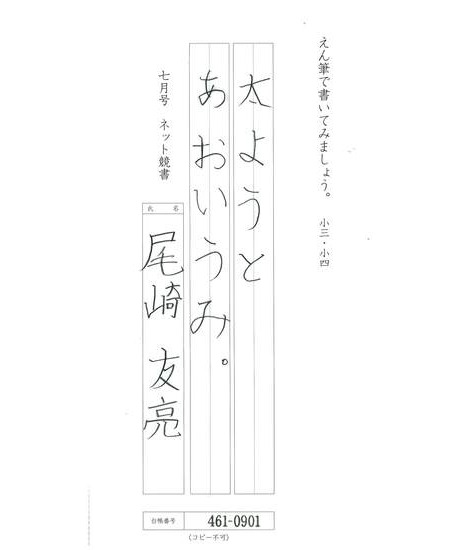 えん筆で書いてみましょう。 小三・小四
太ようと
あおいうみ。
七月号 ネット競書
氏名
尾崎友亮
台帳番号 461-0901
(コピー不可)